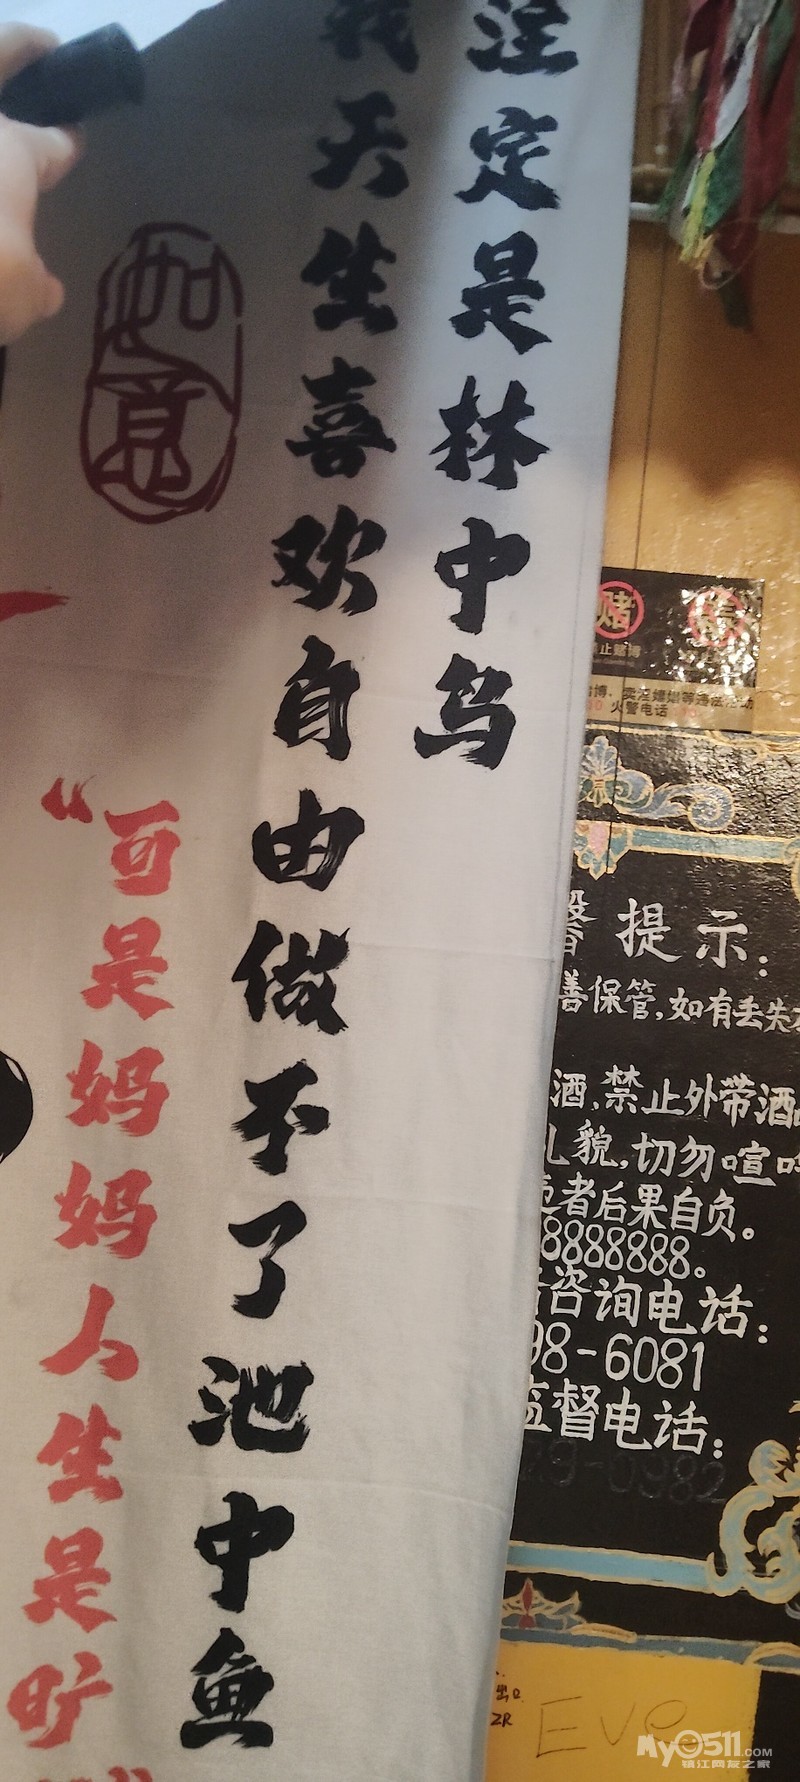 注定是林中鸟
我天生喜欢自由做不了池中鱼
“可是妈妈人生是旷
如意
赌
禁止赌博
赌博、卖淫嫖娼等违法活动
火警电话
提示:
善保管,如有丢失
酒,禁止外带酒
礼貌,切勿喧哗
违者后果自负。
8888888。
咨询电话:
98-6081
监督电话:
79-0982
出口
ZR
Eve
My0511.COM
镇江网友之家